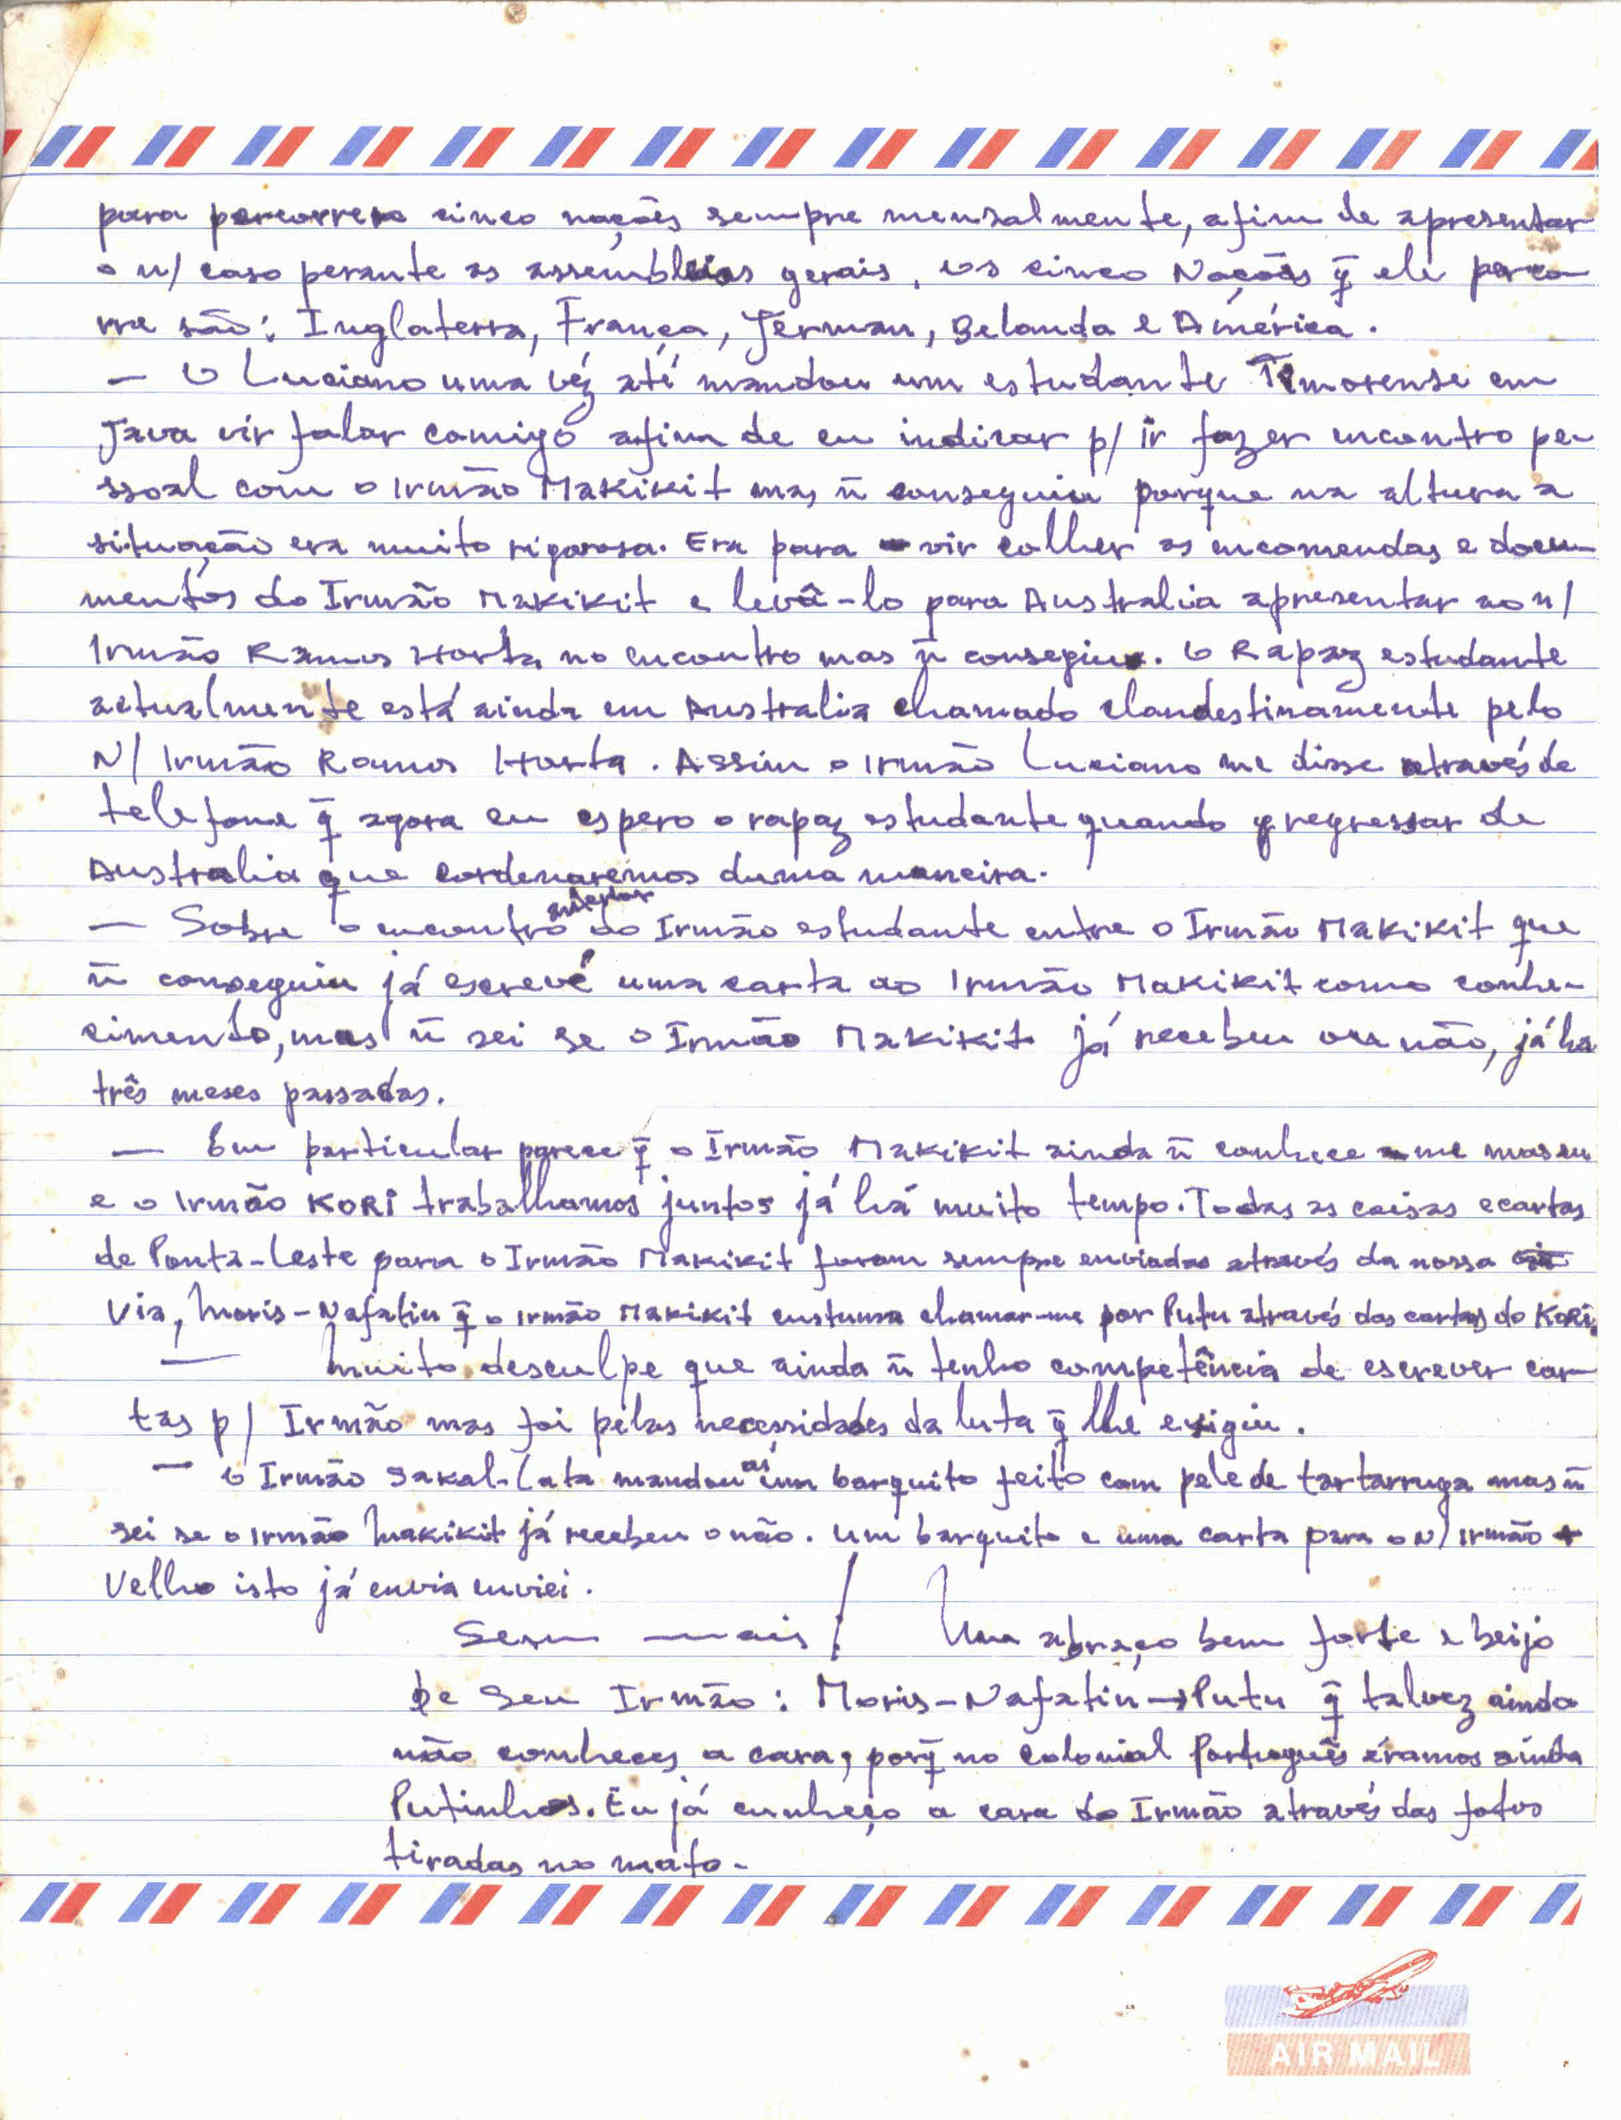 para percorrer cinco nações sempre mensalmente, afim de apresentar
o n/ caso perante as assembleias gerais, os cinco Nações q̃ ele perco-
rre são: Inglaterra, França, Jerman, Belanda e América.
— O Luciano uma véz até mandou um estudante Timorense em
Java vir falar comigo afim de eu indicar p/ ir fazer encontro pe-
ssoal com o Irmão Makikit mas ñ conseguiu porque na altura a
situação era muito rigorosa. Era para vir colher as encomendas e docu-
mentos do Irmão Makikit e levâ-lo para Australia apresentar ao n/
Irmão Ramos Horta no encontro mas ñ conseguiu. O Rapaz estudante
actualmente está ainda em Australia chamado clandestinamente pelo
N/ Irmão Ramos Horta. Assim o Irmão Luciano me disse através de
telefone q̃ agora eu espero o rapaz estudante quando regressar de
Australia que cordenaremos duma maneira.
— Sobre o encontro anterior do Irmão estudante entre o Irmão Makikit que
ñ conseguiu já escrevé uma carta ao Irmão Makikit como conhe-
cimento, mas ñ sei se o Irmão Makikit já recebeu ou não, já ha
três meses passadas.
— Em particular parece q̃ o Irmão Makikit ainda ñ conhece-me mas eu
e o Irmão KORI trabalhamos juntos já há muito tempo. Todas as coisas e cartas
de Ponta-Leste para o Irmão Makikit foram sempre enviadas através da nossa
Via, Moris-Nafatin q̃ o Irmão Makikit custuma chamar-me por Putu através das cartas do KORI.
— Muito desculpe que ainda ñ tenho competência de escrever car-
tas p/ Irmão mas foi pelas necessidades da luta q̃ lhe exigiu.
— O Irmão Sakal-Lata mandou aí um barquito feito com pele de tartarruga mas ñ
sei se o Irmão Makikit já recebeu o não. Um barquito e uma carta para o N/ Irmão
Velho isto já envia enviei.
Sem mais! Um abraço bem forte e beijo
de Seu Irmão: Moris-Nafatin → Putu q̃ talvez ainda
não conheces a cara, porq̃ no colonial Português éramos ainda
Putinhos. Eu já cunheço a cara do Irmão através das fotos
tiradas no mato-
AIR MAIL